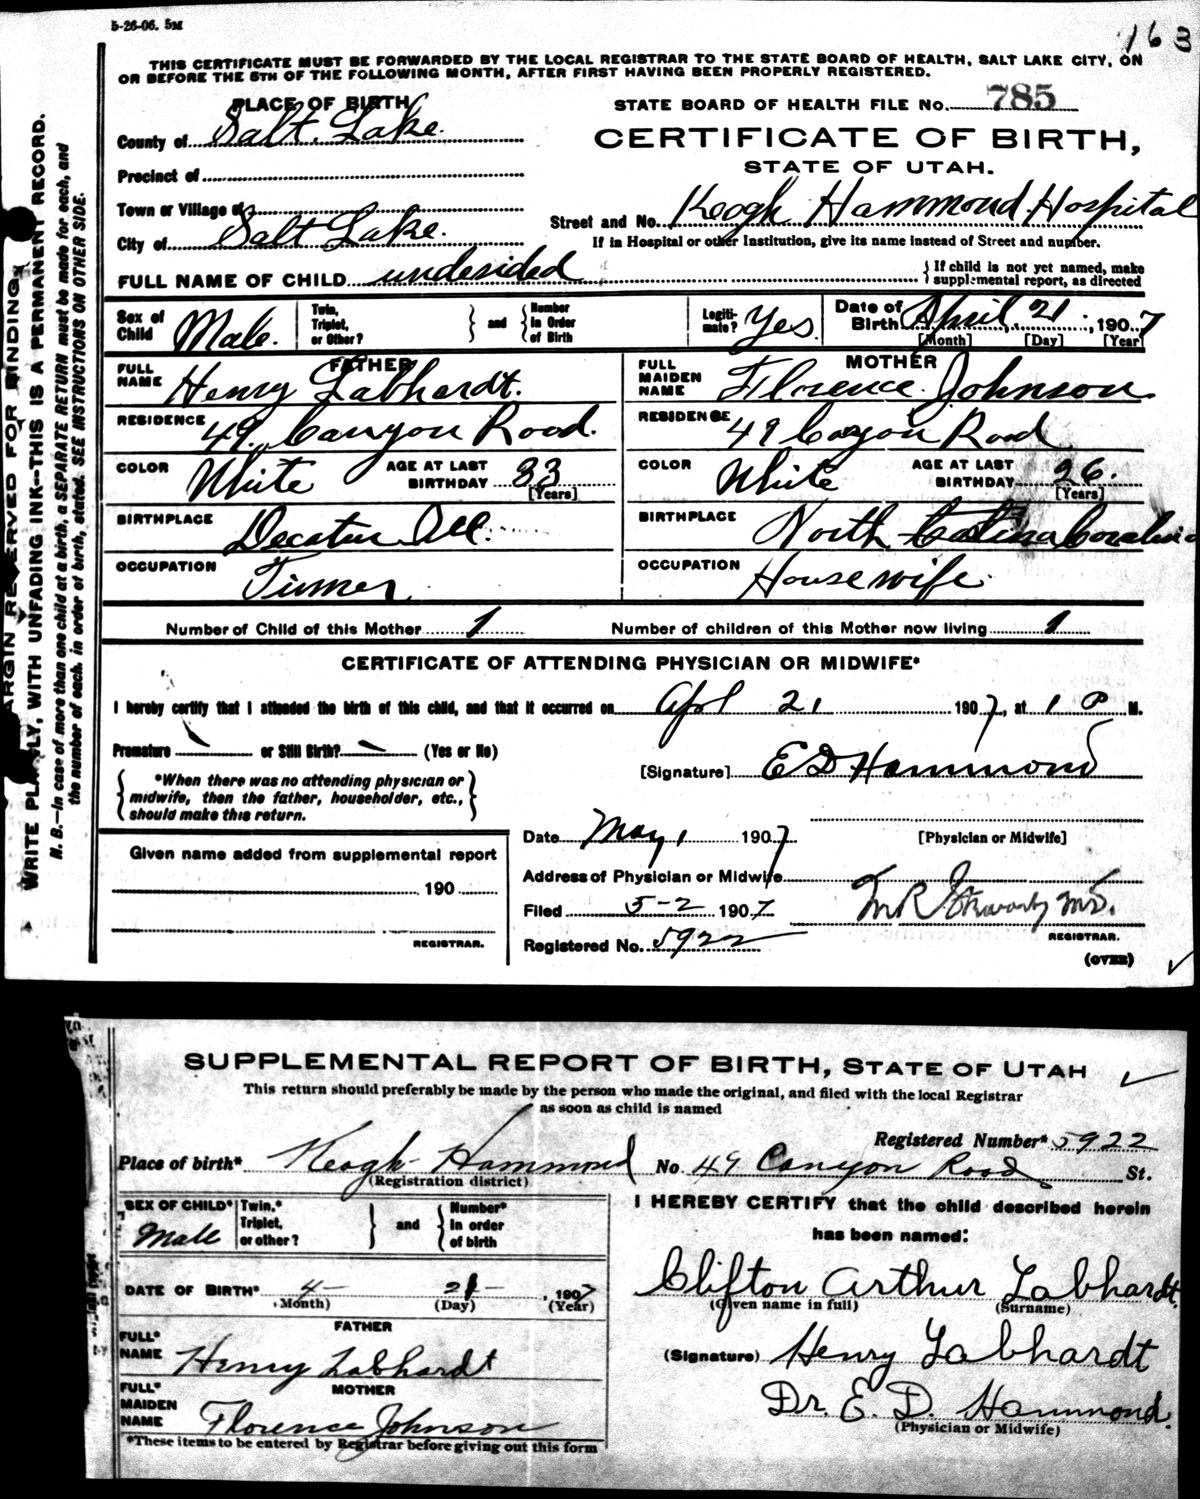 5-26-06. 5M
163
THIS CERTIFICATE MUST BE FORWARDED BY THE LOCAL REGISTRAR TO THE STATE BOARD OF HEALTH, SALT LAKE CITY, ON
OR BEFORE THE 5TH OF THE FOLLOWING MONTH, AFTER FIRST HAVING BEEN PROPERLY REGISTERED.
PLACE OF BIRTH
STATE BOARD OF HEALTH FILE No. 785
County of Salt Lake
CERTIFICATE OF BIRTH,
STATE OF UTAH.
Precinct of
Town or Village of
Street and No. Keogh Hammond Hospital
City of Salt Lake.
If in Hospital or other Institution, give its name instead of Street and number.
FULL NAME OF CHILD undesided
If child is not yet named, make
supplemental report, as directed
Sex of Child Male. Twin, Triplet, or Other? and Number in Order of Birth Legiti-mate? Yes Date of Birth April 21, 1907
[Month] [Day] [Year]
FATHER
MOTHER
FULL NAME Henry Labhardt.
FULL MAIDEN NAME Florence Johnson
RESIDENCE 49 Canyon Rood.
RESIDENCE 49 Cayon Road
COLOR White AGE AT LAST BIRTHDAY 33 [Years]
COLOR White AGE AT LAST BIRTHDAY 26. [Years]
BIRTHPLACE Decatur Ill.
BIRTHPLACE North Carolina
OCCUPATION
OCCUPATION Housewife
Number of Child of this Mother 1
Number of children of this Mother now living 1
CERTIFICATE OF ATTENDING PHYSICIAN OR MIDWIFE*
I hereby certify that I attended the birth of this child, and that it occurred on Apl 21 1907, at 1 P M.
Premature or Still Birth? (Yes or No)
[Signature] E D Hammond
*When there was no attending physician or
midwife, then the father, householder, etc.,
should make this return.
Date May 1 1907
[Physician or Midwife]
Given name added from supplemental report
190
REGISTRAR.
Address of Physician or Midwife
Filed 5-2 1907
Registered No. 5922
REGISTRAR.
(OVER)
MARGIN RESERVED FOR BINDING.
WRITE PLAINLY, WITH UNFADING INK--THIS IS A PERMANENT RECORD.
N. B.—In case of more than one child at a birth, a SEPARATE RETURN must be made for each, and
the number of each, in order of birth, stated. SEE INSTRUCTIONS ON OTHER SIDE.
SUPPLEMENTAL REPORT OF BIRTH, STATE OF UTAH
This return should preferably be made by the person who made the original, and filed with the local Registrar
as soon as child is named
Registered Number* 5922
Place of birth* Keogh-Hammond No. 49 Canyon Road St.
(Registration district)
SEX OF CHILD* Male Twin,* Triplet, or other? and Number* in order of birth
I HEREBY CERTIFY that the child described herein
has been named:
DATE OF BIRTH* 4- 21- 1907
(Month) (Day) (Year)
Clifton Arthur Labhardt
(Given name in full) (Surname)
FATHER
FULL* NAME Henry Labhardt
(Signature) Henry Labhardt
MOTHER
FULL* MAIDEN NAME Florence Johnson
Dr. E. D. Hammond.
(Physician or Midwife)
*These items to be entered by Registrar before giving out this form